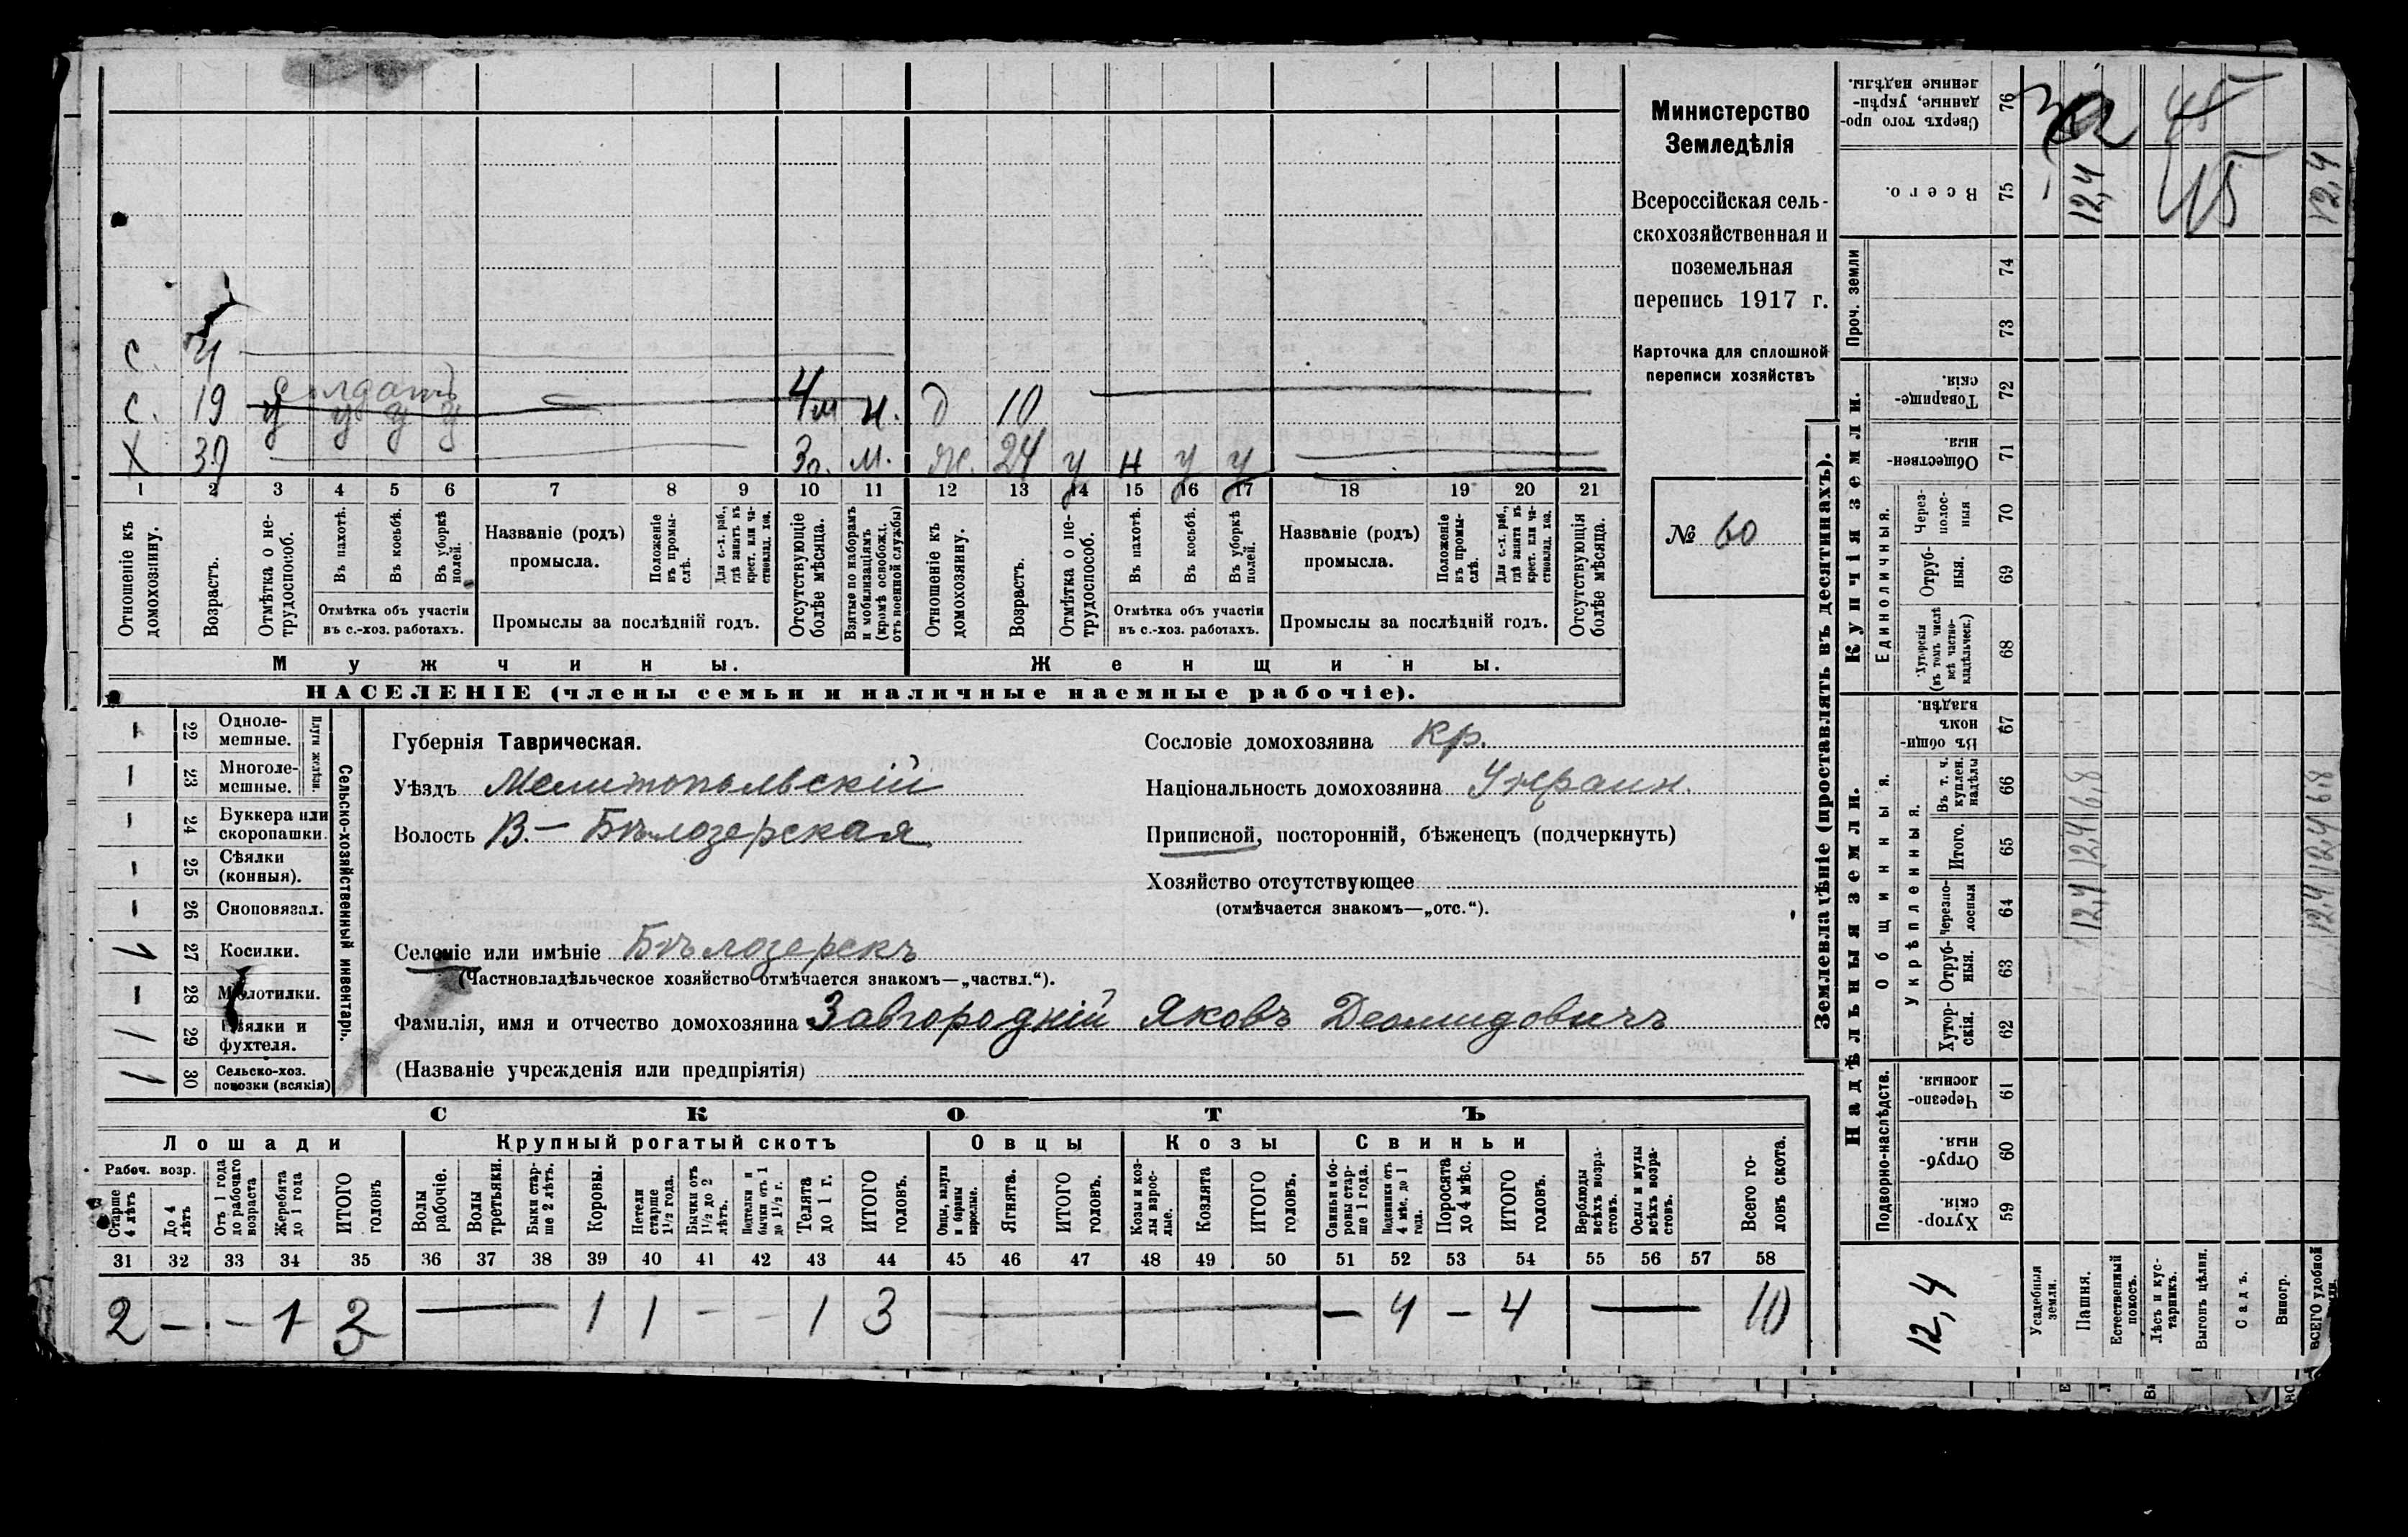 Министерство
Земледѣлія
Всероссійская сель-
скохозяйственная и
поземельная
перепись 1917 г.
Карточка для сплошной
переписи хозяйствъ
№ 60
С. 4
солдатъ
С. 19 У У У У 4 м н. д 10
Х 39 3 г. м. ж. 24 у н у у
1 2 3 4 5 6 7 8 9 10 11 12 13 14 15 16 17 18 19 20 21
Отношеніе къ домохозяину.
Возрастъ.
Отмѣтка о не-трудоспособ.
Въ пахотѣ.
Въ косьбѣ.
Въ уборкѣ полей.
Отмѣтка объ участіи
въ с.-хоз. работахъ.
Названіе (родъ)
промысла.
Положеніе въ промы-слѣ.
Для с.-х. раб., гдѣ занятъ въ крест. или ча-стновлад. хоз.
Промыслы за послѣдній годъ.
Отсутствующіе болѣе мѣсяца.
Взятые по наборамъ и мобилизаціямъ (кромѣ освобожд. отъ военной службы)
Отношеніе къ домохозяину.
Возрастъ.
Отмѣтка о не-трудоспособ.
Въ пахотѣ.
Въ косьбѣ.
Въ уборкѣ полей.
Отмѣтка объ участіи
въ с.-хоз. работахъ.
Названіе (родъ)
промысла.
Положеніе въ промы-слѣ.
Для с.-х. раб., гдѣ занята въ крест. или ча-стновлад. хоз.
Промыслы за послѣдній годъ.
Отсутствующія болѣе мѣсяца.
Мужчины. Женщины.
НАСЕЛЕНІЕ (члены семьи и наличные наемные рабочіе).
Сельско-хозяйственный инвентарь.
Плуги желѣзн.
– 22 Одноле-мешные.
– 23 Многоле-мешные.
– 24 Буккера или скоропашки.
– 25 Сѣялки (конныя).
– 26 Сноповязал.
1 27 Косилки.
– 28 Молотилки.
1 29 Вѣялки и фухтеля.
1 30 Сельско-хоз. повозки (всякія)
Губернія Таврическая.
Уѣздъ Мелитопольскій
Волость В.– Бѣлозерская
Селеніе или имѣніе Бѣлозерскъ
(Частновладѣльческое хозяйство отмѣчается знакомъ—„частвл.“).
Фамилія, имя и отчество домохозяина Завгородній Яковъ Деомидовичъ
(Названіе учрежденія или предпріятія)
Сословіе домохозяина кр.
Національность домохозяина Украин.
Приписной, посторонній, бѣженецъ (подчеркнуть)
Хозяйство отсутствующее
(отмѣчается знакомъ—„отс.“).
СКОТЪ
Лошади Крупный рогатый скотъ Овцы Козы Свиньи
Рабоч. возр.
Старше 4 лѣтъ
До 4 лѣтъ
Отъ 1 года до рабочаго возраста
Жеребята до 1 года
ИТОГО головъ
Волы рабочіе.
Волы третьяки.
Быки стар-ше 2 лѣтъ.
Коровы.
Нетели старше 1½ года.
Бычки отъ 1½ до 2 лѣтъ.
Подтелки и бычки отъ 1 до 1½ г.
Телята до 1 г.
ИТОГО головъ.
Овцы, валухи и бараны взрослые.
Ягнята.
ИТОГО головъ.
Козы и коз-лы взрос-лые.
Козлята
ИТОГО головъ.
Свиньи и бо-ровы стар-ше 1 года.
Подсвинки отъ 4 мѣс. до 1 года.
Поросята до 4 мѣс.
ИТОГО головъ.
Верблюды всѣхъ возра-стовъ.
Ослы и мулы всѣхъ возра-стовъ.
Всего го-ловъ скота.
31 32 33 34 35 36 37 38 39 40 41 42 43 44 45 46 47 48 49 50 51 52 53 54 55 56 57 58
2 – – 1 3 — 1 1 – – 1 3 — – 4 – 4 — 10
Землевладѣніе (проставлять въ десятинахъ).
Надѣльныя земли. Купчія земли. Проч. земли
Подворно-наслѣдств.
Общинныя.
Укрѣпленныя.
Единоличныя.
Хутор-скія. 59
Отруб-ныя. 60
Черезпо-лосныя. 61
Хутор-скія. 62
Отруб-ныя. 63
черезпо-лосныя 64
Итого. 65
Въ т. ч. куплен. надѣлы 66
Въ общи-номъ владѣн. 67
Хуторскія (въ томъ числѣ всѣ частно-владѣльческ.) 68
Отруб-ныя. 69
Через-полос-ныя 70
Обществен-ныя. 71
Товарище-скія. 72
73
74
Всего. 75
Сверхъ того про-данные, укрѣп-ленные надѣлы. 76
12,4
Усадебныя земли.
Пашня. 12,4 12,4 6,8 12,4
Естественный покосъ.
Лѣсъ и кус-тарникъ.
Выгонъ цѣлин.
Садъ.
Виногр.
ВСЕГО удобной 12,4 12,4 6,8 12,4
45
45